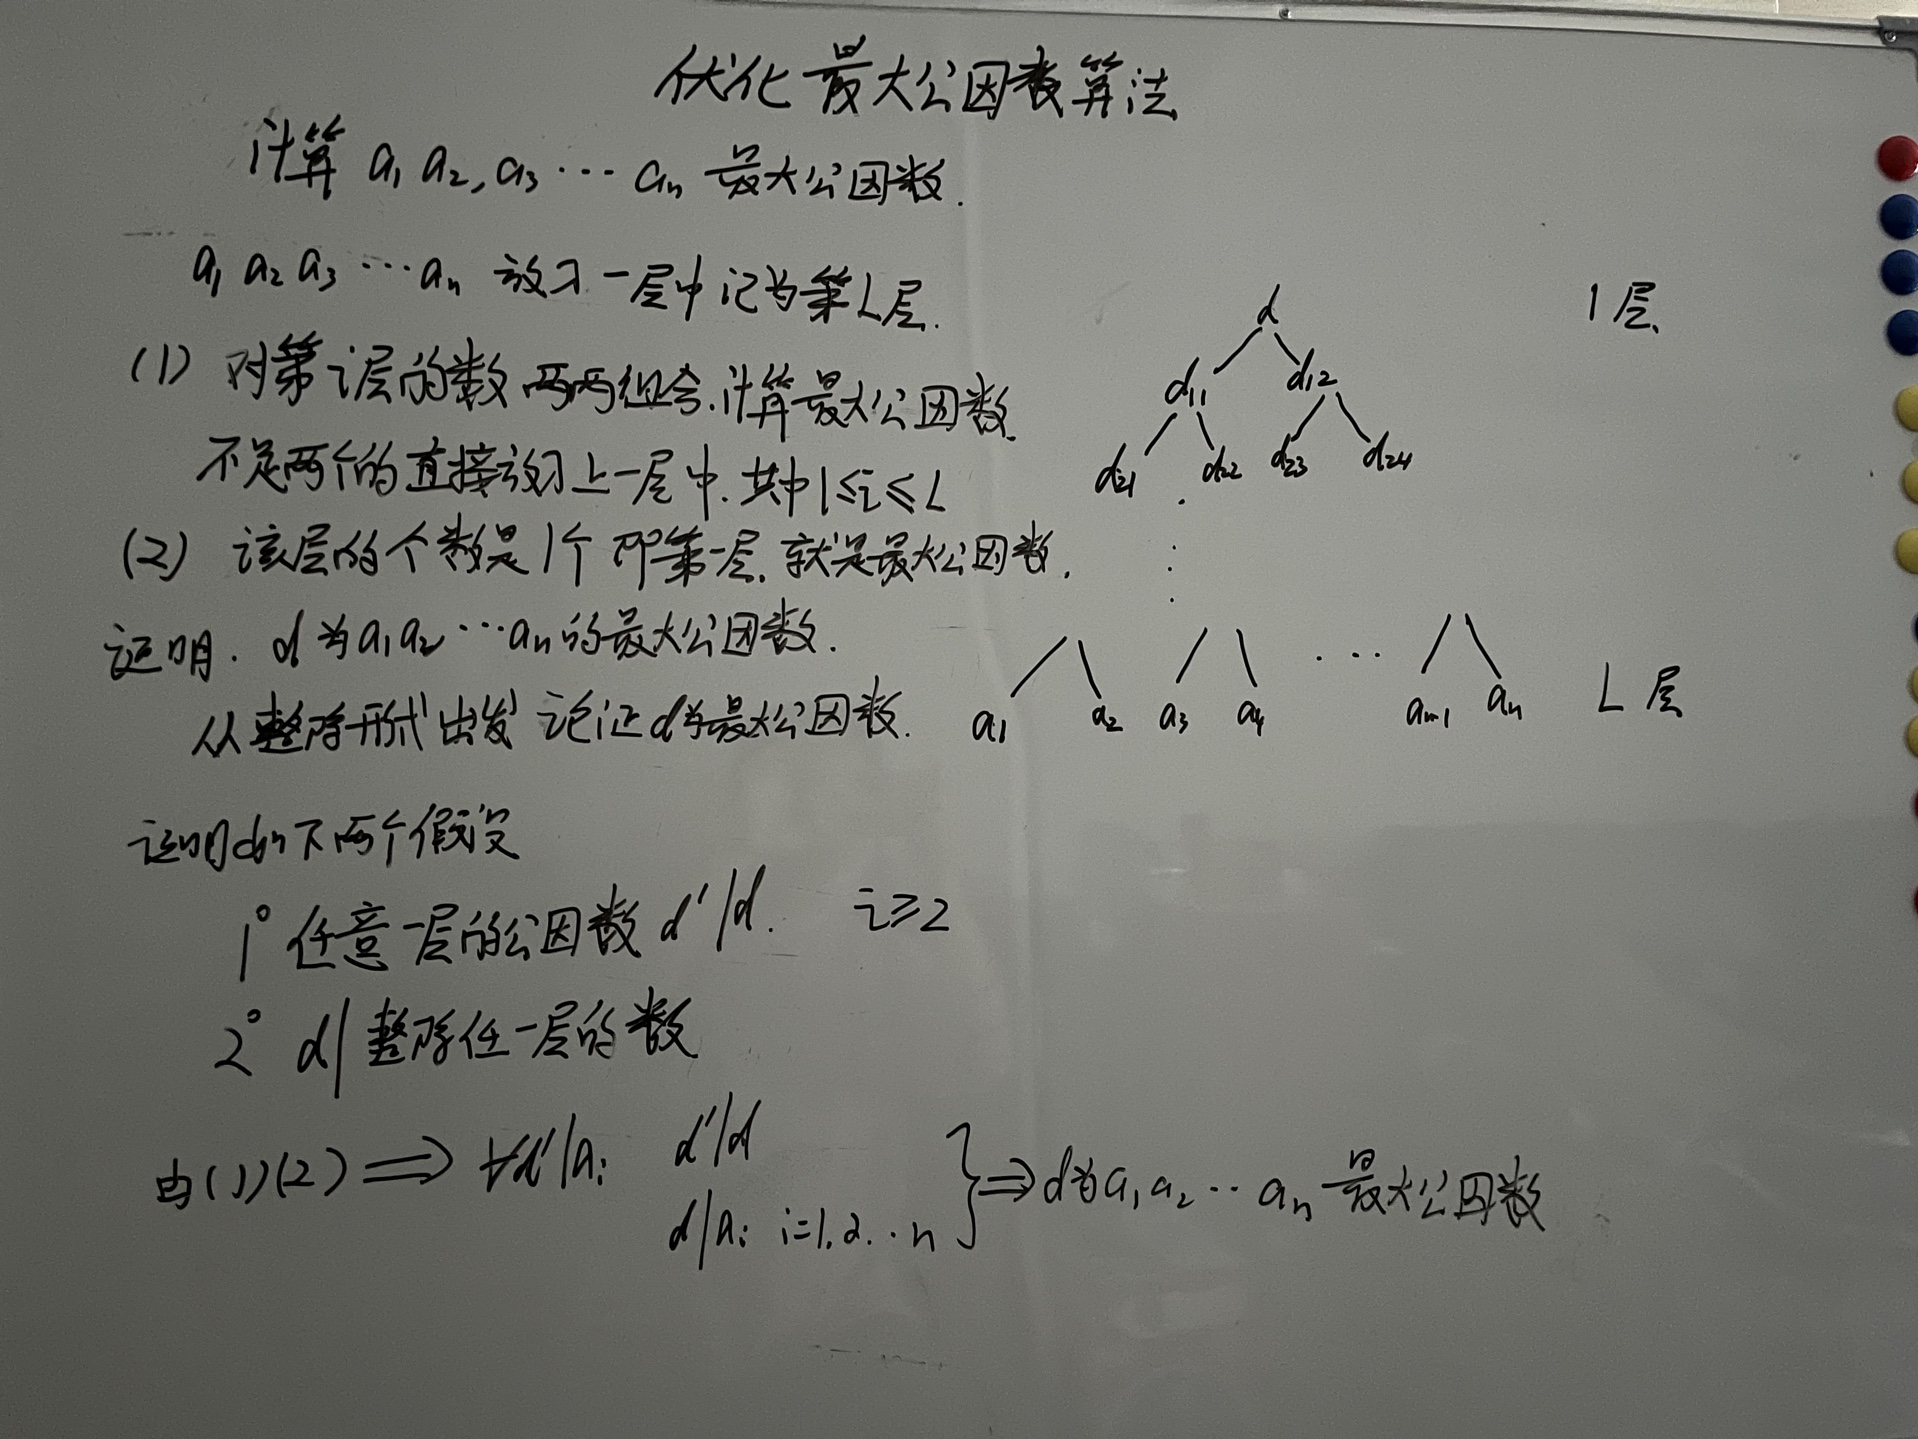 优化最大公因数算法
计算 a₁ a₂, a₃ ⋯ aₙ 最大公因数.
a₁ a₂ a₃ ⋯ aₙ 放入一层中记为第L层.
(1) 对第i层的数两两组合.计算最大公因数.
不足两个的直接放到上一层中. 其中 1≤i≤L
(2) 该层的个数是1个 即第一层. 就是最大公因数.
证明. d为a₁a₂⋯aₙ的最大公因数.
从整除形式出发 论证d为最大公因数.
证明如下两个假设
1° 任意一层的公因数 d'|d. i≥2
2° d| 整除任一层的数
由(1)(2) ⟹ ∀d'|aᵢ d'|d
d|aᵢ i=1.2.·n } ⟹ d为a₁ a₂ ·· aₙ 最大公因数
d 1层
d₁₁ d₁₂
d₂₁ d₂₂ d₂₃ d₂₄
a₁ a₂ a₃ a₄ ⋯ aₙ₋₁ aₙ L层